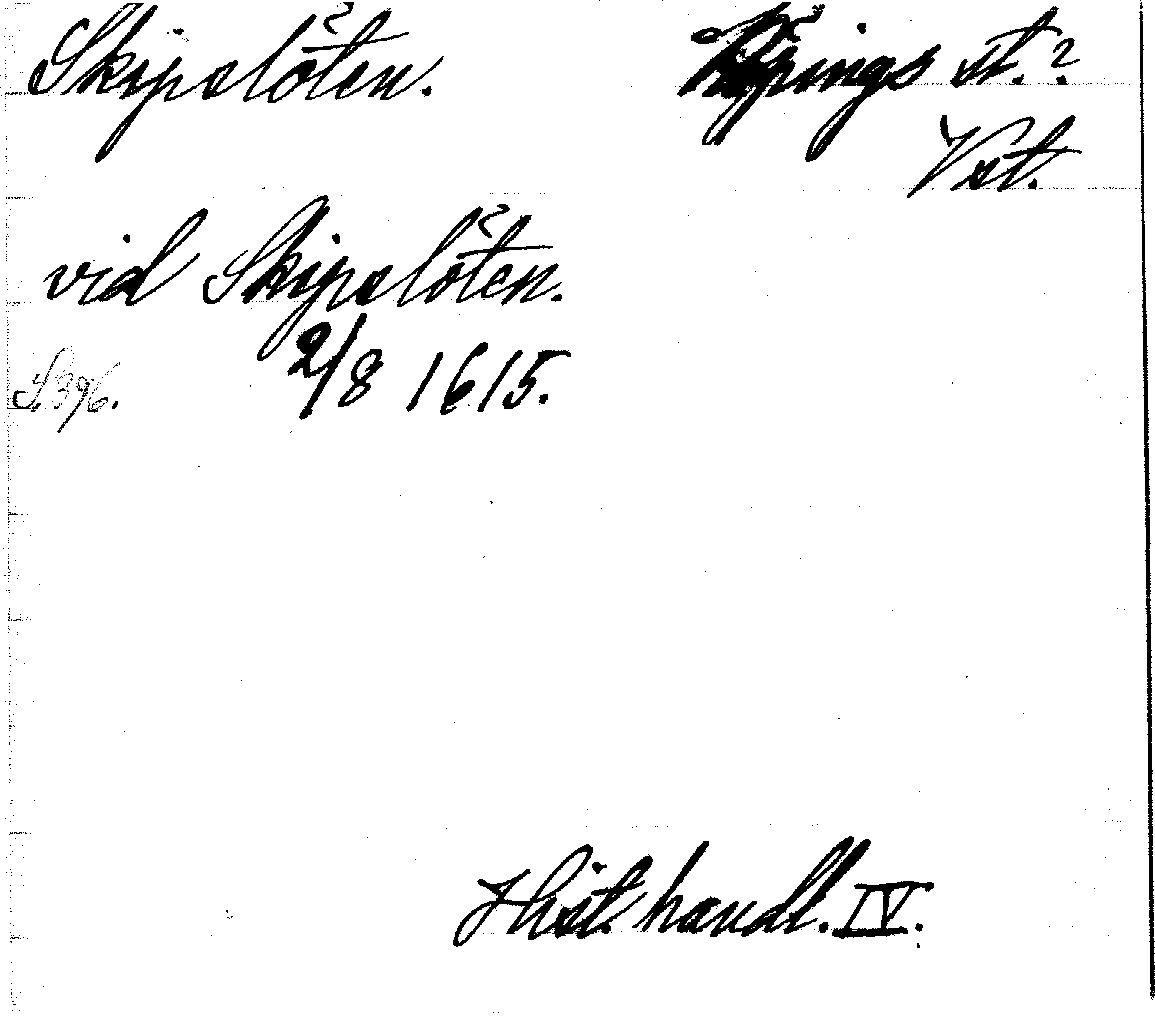 Skipslöten. Köpings st.?
Vst.
vid Skipslöten.
2/8 1615.
S. 396.
Hist. handl. IV.